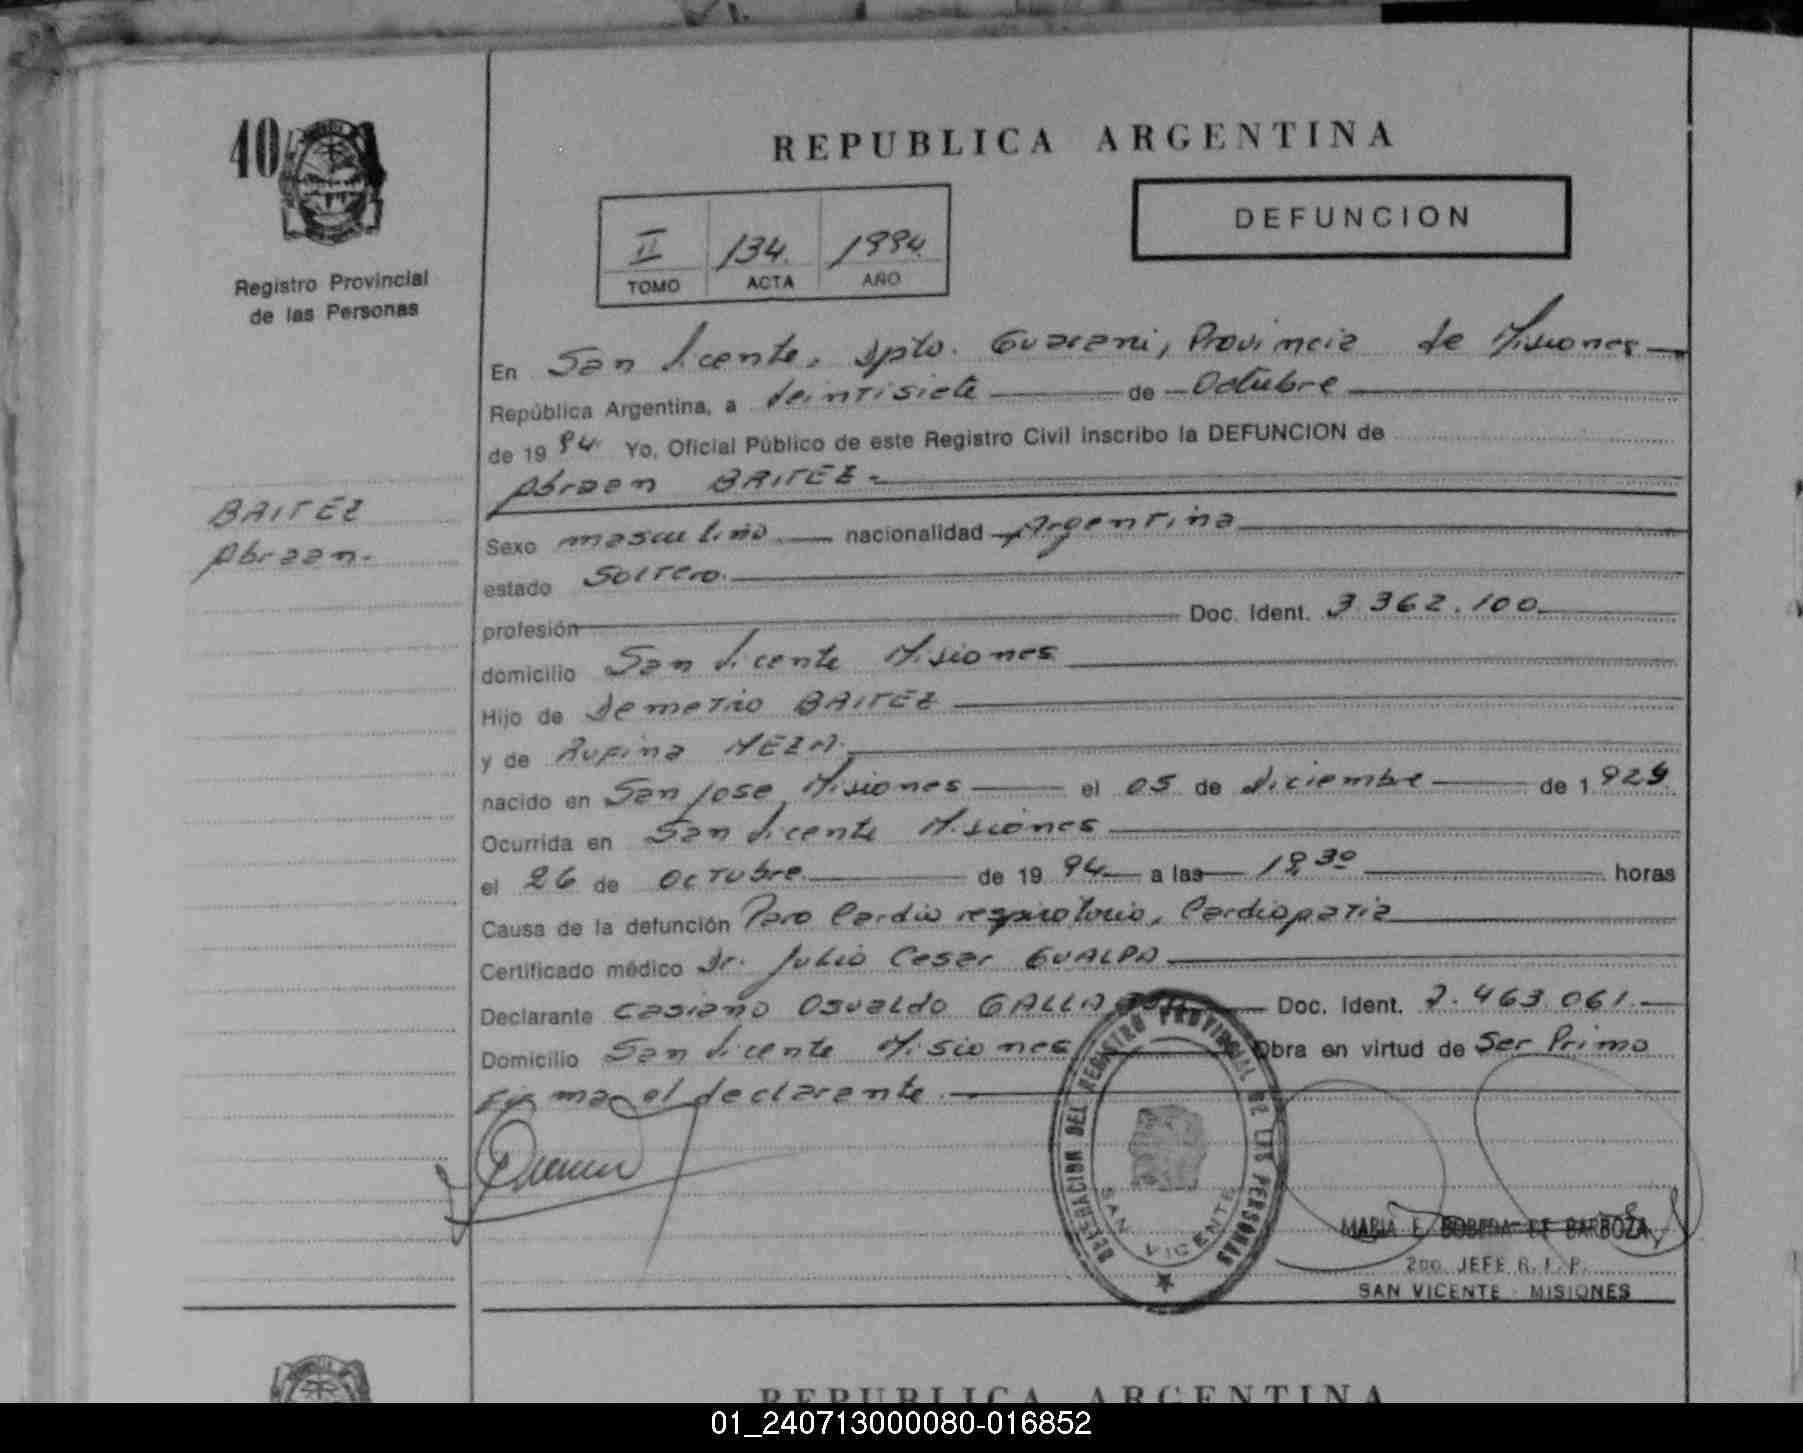 40
Registro Provincial
de las Personas
REPUBLICA ARGENTINA
DEFUNCION
II 134. 1994.
TOMO ACTA AÑO
En San Vicente, Dpto. Guarani, Provincia de Misiones
República Argentina, a Veintisiete de Octubre
de 1994 Yo, Oficial Público de este Registro Civil inscribo la DEFUNCION de
Abraan BRITEZ
BRITEZ
Abraan.
Sexo masculino nacionalidad Argentina
estado Soltero.
profesión Doc. Ident. 3.362.100
domicilio San Vicente Misiones
Hijo de Demetrio BRITEZ
y de Rufina MEZA.
nacido en San Jose Misiones el 05 de Diciembre de 1929
Ocurrida en San Vicente Misiones
el 26 de Octubre de 1994 a las horas
Causa de la defunción Paro Cardio respiratorio, Cardiopatia
Certificado médico Dr. Julio Cesar GUALPA
Declarante Casiano Osvaldo Doc. Ident. 7.463.061.
Domicilio San Vicente Misiones Obra en virtud de Ser Primo
Firma el declarante
DELEGACION DEL REGISTRO PROVINCIAL DE LAS PERSONAS
SAN VICENTE
MARIA E. BOBEDA DE BARBOZA
2do. JEFE R. P. P.
SAN VICENTE - MISIONES
REPUBLICA ARGENTINA
01_240713000080-016852